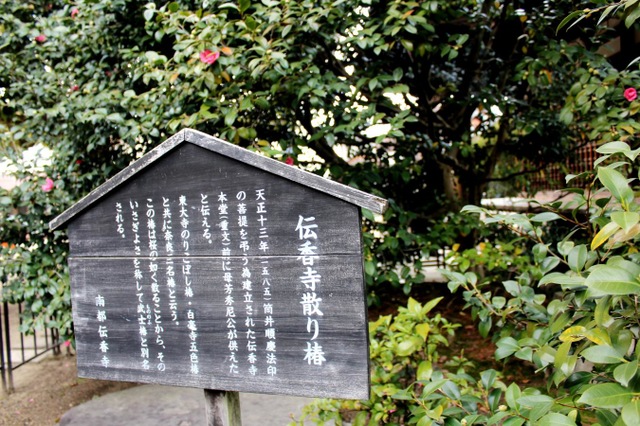 伝香寺散り椿
天正十三年(一五八五)筒井順慶法印
の菩提を弔う為建立された伝香寺
本堂(重文)前に母芳秀尼公が供えた
と伝える。
東大寺のりこぼし椿・白毫寺五色椿
と共に奈良三名椿と云う。
この椿は桜の如く散ることから、その
いさぎよさを称して武士椿と別名
もののふ
される。
南都 伝香寺